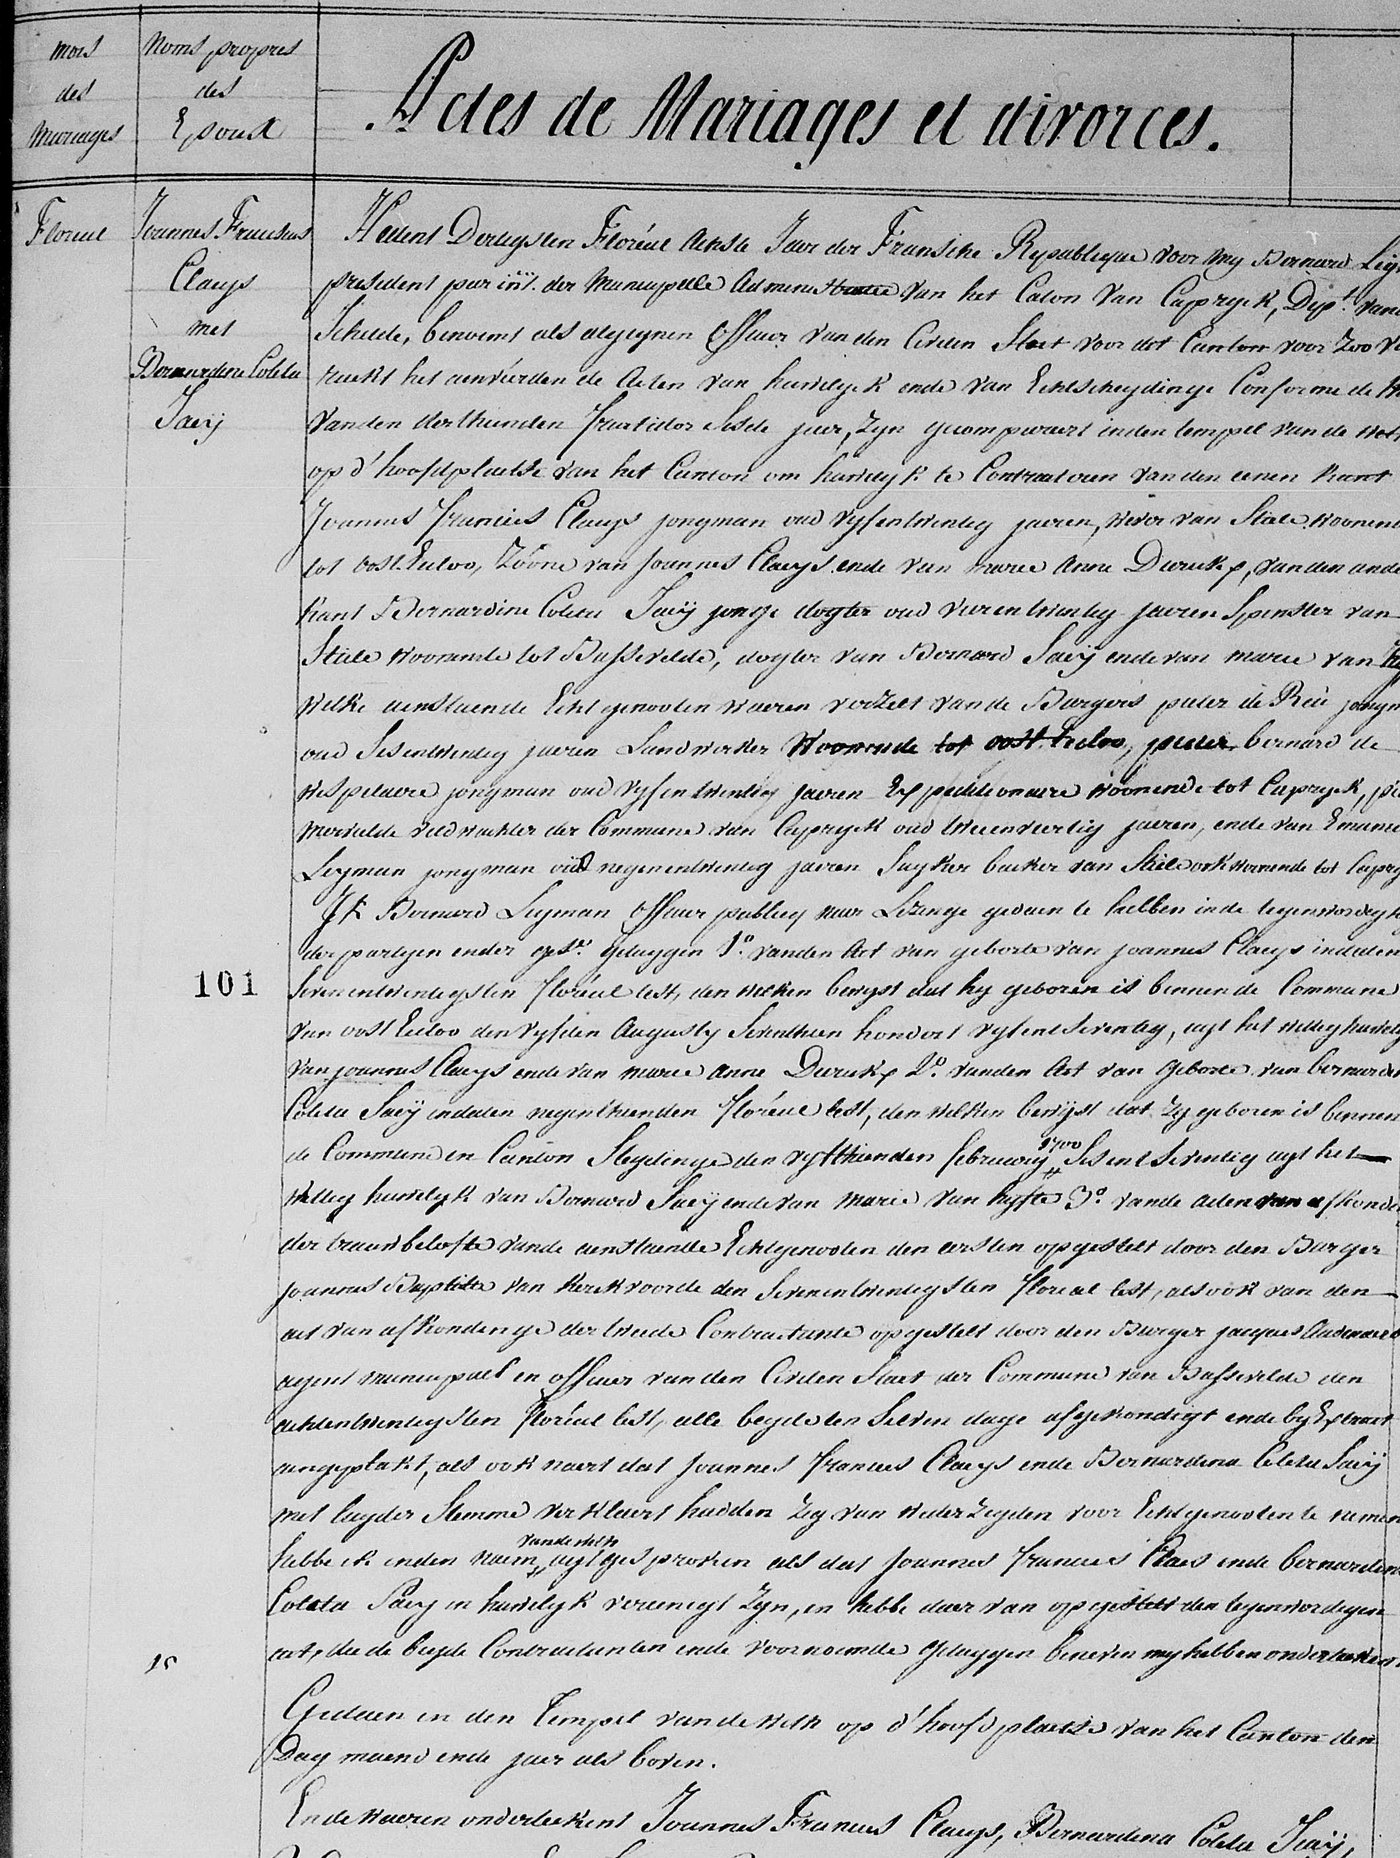 mois
des
Mariages
Noms propres
des
Epoux
Actes de Mariages et divorces.
Floreal
Joannes Franciscus
Claeys
met
Bernardine Coleta
Saeij
Heden Dertigsten Floréal Achste Jaer der Fransche Republique voor my Bernard
president par int. der Municipelle Administratie van het Caton van Capryck, Dept. vande
Schelde, benoemt als algeynen officier van den Civilen Staet voor dot Canton voor Zoo
raekt het aenveirden de Acten van huwelyck ende van Echtscheydinge Conforme de
vanden derthienden fructidor Sesde jaer, Zyn gecompareert inden tempel van de wet
op d'hoofdplaetse van het Canton om huwelyk te Contracteren van den eenen kant
Joannes francies Claeys jongman oud vyfentwintig jaeren, wever van Stiele woonende
tot oost Eecloo, Zoone van Joannes Claeys ende van marie Anne Dierickx, vanden ande
kant Bernardine Coleta Saeij jonge dogter oud vierentwintig jaeren Spinster van
Stiele woonende tot Bassevelde, dogter van Bernard Saeij ende van marie van
welke aenstaende Echtgenooten waeren verzelt van de Burgers pieter de Reu jongm
oud Sesentwintig jaeren Landwerker woonende tot oost Eecloo, pieter bernard de
wispelaere jongman oud vyfentwintig jaeren Expeditionaire woonende tot Capryck,
Mervielde veldwachter der Commune van Capryck oud tweenveertig jaeren, ende van Emanuel
Leyman jongman oud negenentwintig jaeren Suyker backer van Stiele ook woonende tot Capry
Ik Bernard Leyman officier publiq naer Lezinge gedaen te hebben in de tegenwoordighe
der partyen ender gese. getuygen 1o. vanden Act van geborte van joannes Claeys in daten
Sevenentwintigsten floréal lest, den welken bewyst dat hy geboren is binnen de Commune
van oost Eecloo den vyfden Augusty Seventhien hondert vyfentseventig, uyt het wettig huwely
van joannes Claeys ende van marie Anne Dierickx 2o. vanden Act van geborte van bernardin
Coleta Saeij in daten negenthienden floréal lest, den welken bewyst dat zy geboren is binnen
de Commune en Canton Sleydinge den vyfthienden february 1700 Sesentseventig uyt het
Wettig huwelyk van Bernard Saeij ende van Marie van hyfte 3o. vande acten van afkondi
der trauwbelofte vande aenstaende Echtgenooten den eersten opgestelt door den Burger
joannes Baptiste van Kerkvoorde den Sevenentwintigsten floreal lest, alsook van den
act van afkondinge der tweede Contractante opgestelt door den Burger jacques
agent municipael en officier van den Civilen Staet der Commune van Bassevelde den
achtentwintigsten floréal lest, alle beyde ten Selven dage afgekondigt ende by Extract
aengeplakt, als ook naer dat Joannes francies Claeys ende Bernardina Coleta Saeij
met luyder Stemme verklaert hadden Zig van weder zeyden voor Echtgenooten te nemen
hebbe ik inden naem vande wet uytgesproken als dat Joannes francies Claes ende bernardina
Coleta Saey in huwelyk vereenigt Zyn, en hebbe daer van opgestelt den tegenwordigen
act, die de beyde Contractanten ende voornoemde getuygen beneven my hebben onderteekent.
101
15
Gedaen in den tempel van de weth op d'hoofdplaetse van het Canton den
Dag maend ende jaer als boven.
Ende waeren onderteekent Joannes Francies Claeys, Bernardina Coleta Saeij,